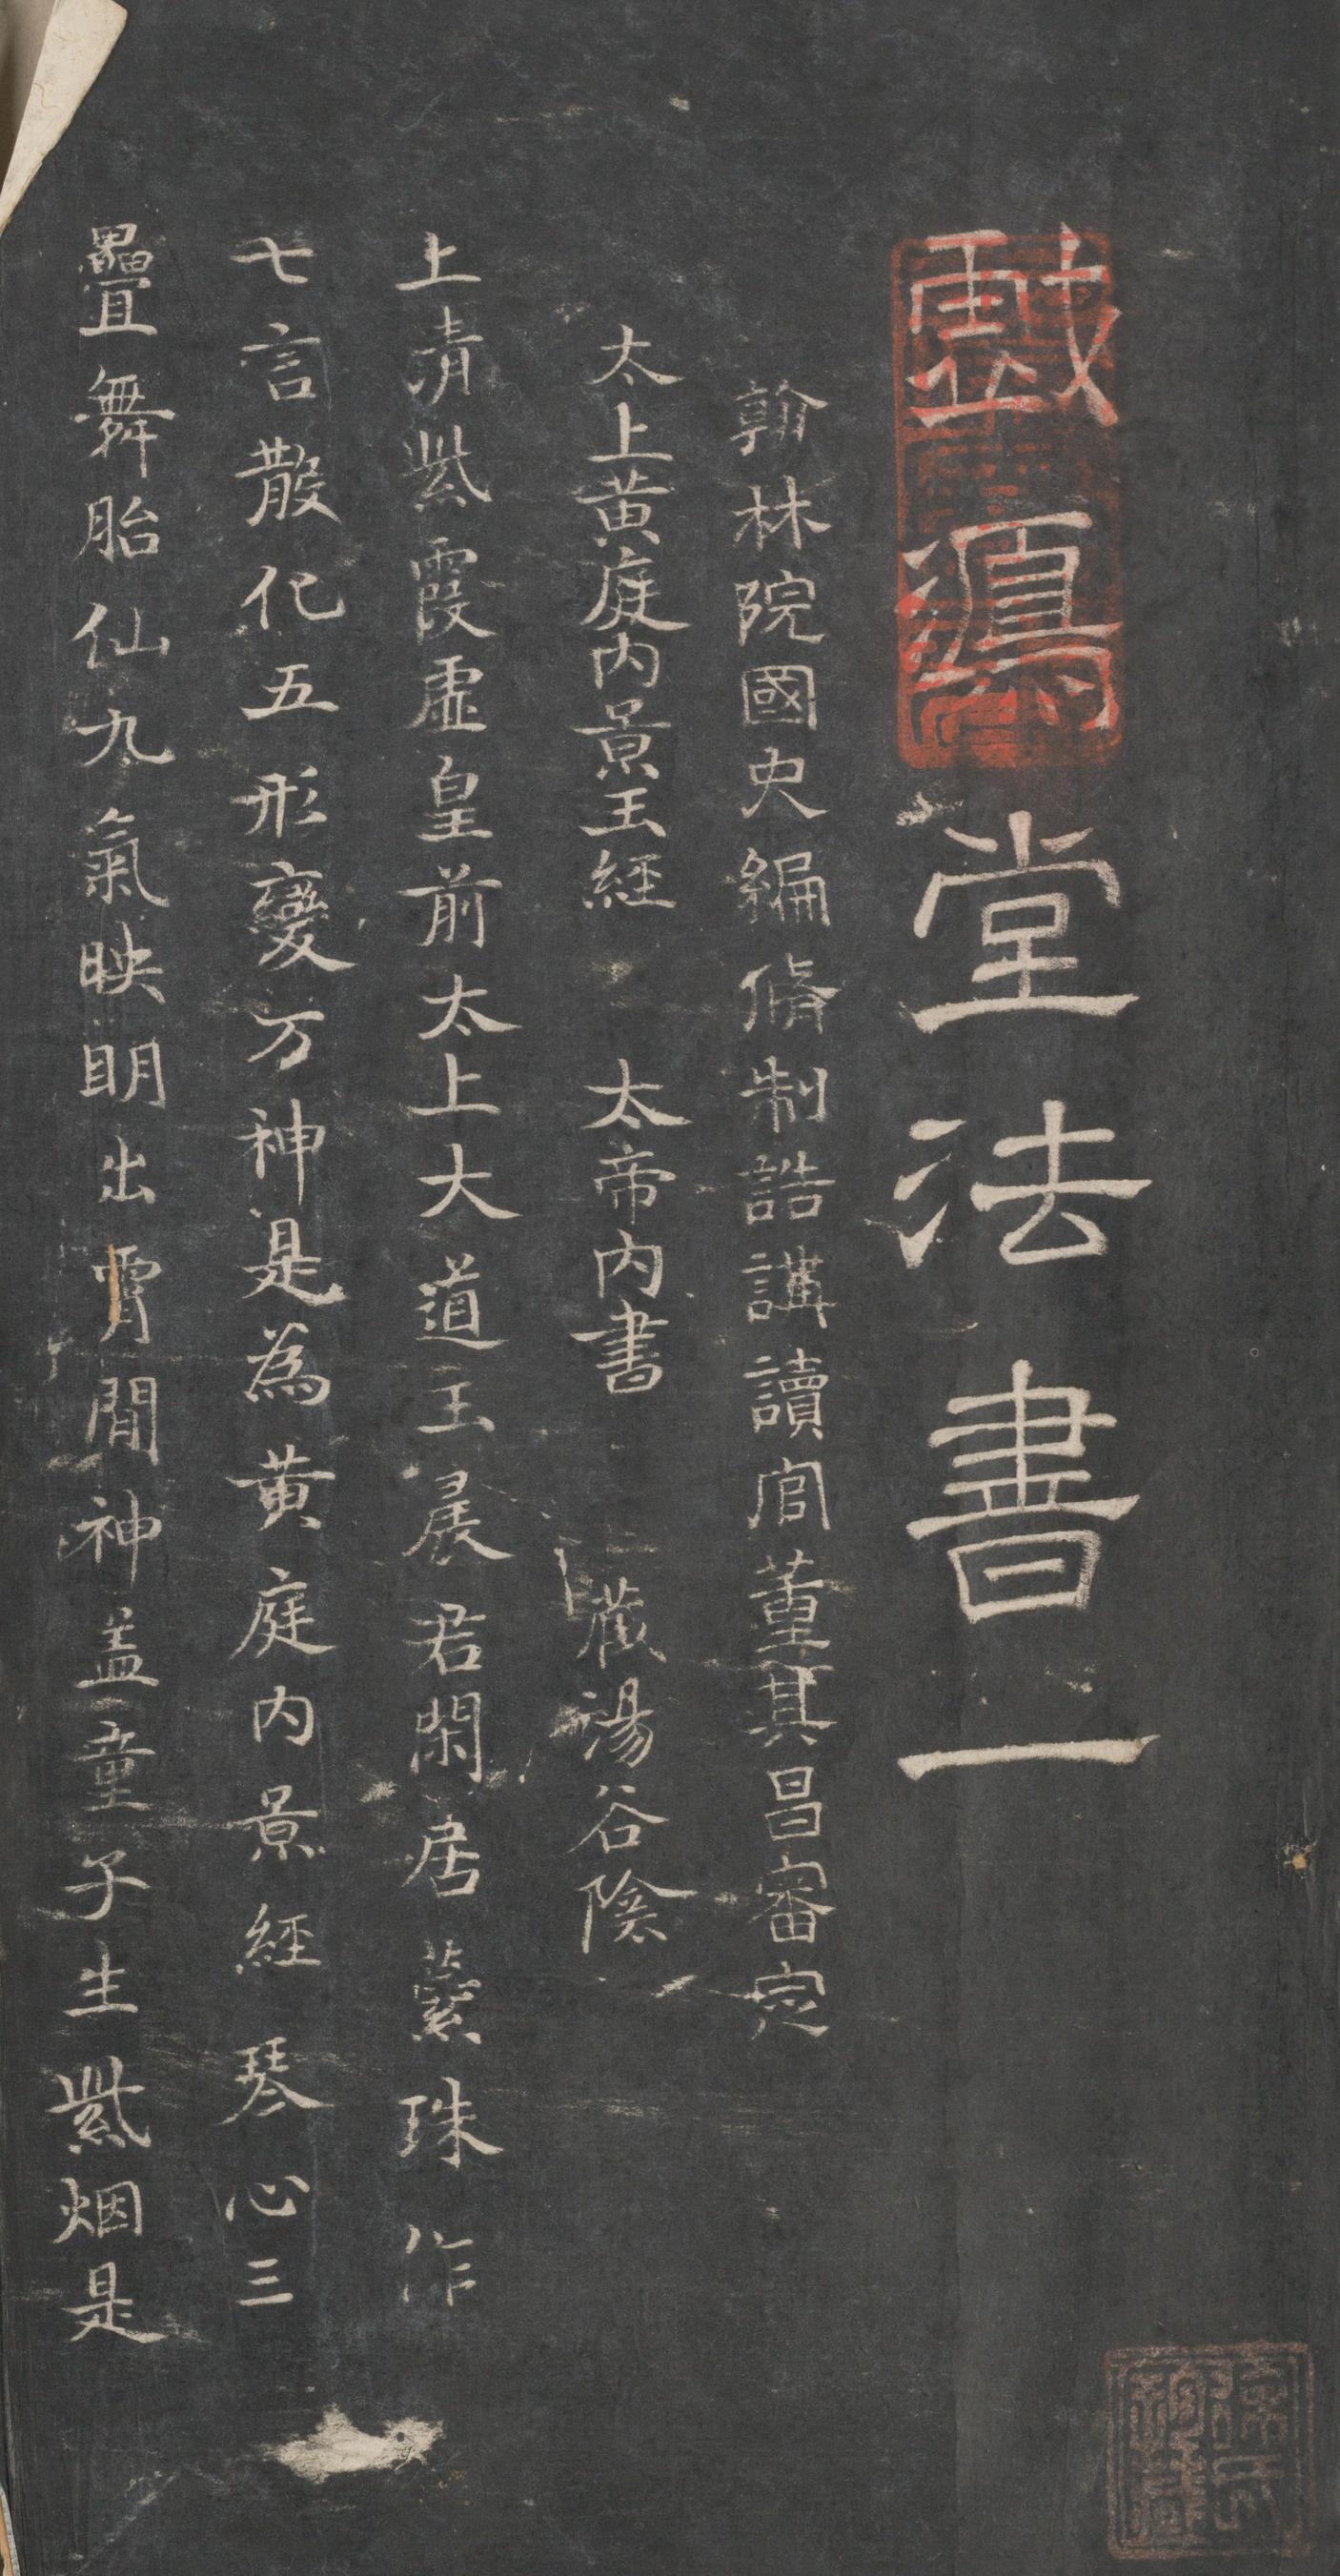 戲鴻堂法書一
翰林院國史編脩制誥講讀官董其昌審定
太上黄庭内景玉經 太帝内書 藏湯谷陰
上清紫霞虛皇前太上大道玉晨君閑居蘂珠作
七言散化五形變万神是為黄庭内景經琴心三
疊舞胎仙九氣映明出霄間神盖童子生紫烟是